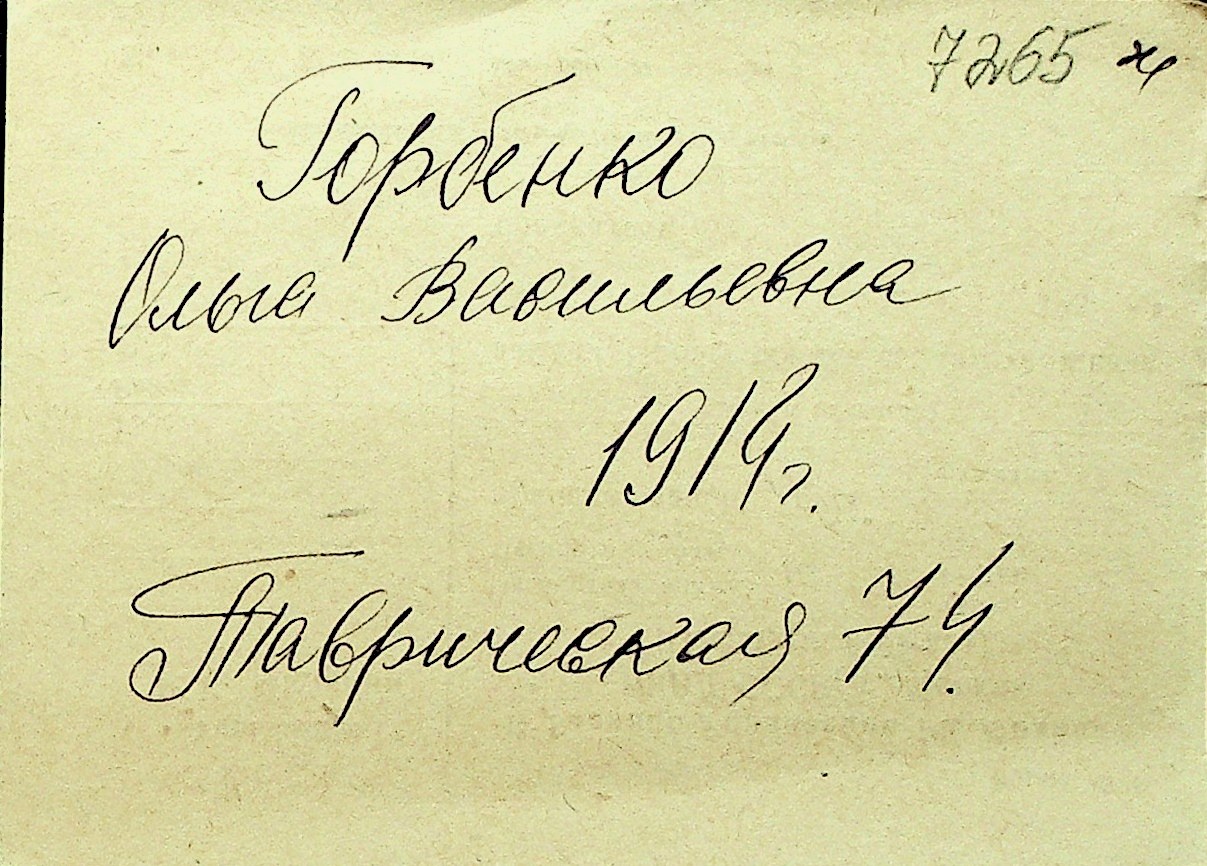 7265 ж
Горбенко
Ольга Васильевна
1914г.
Таврическая 74.